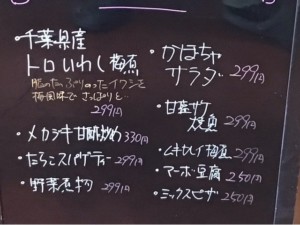 ・千葉県産
トロいわし梅煮
脂のたっぷりのったイワシを
梅風味でさっぱりと…
299円
・メカジキ甘酢炒め 330円
・たらこスパゲティー 299円
・野菜煮物 299円
・かぼちゃ
サラダ 299円
・甘塩サケ
焼魚 299円
・ムキカレイ 299円
・マーボ豆腐 250円
・ミックスピザ 250円